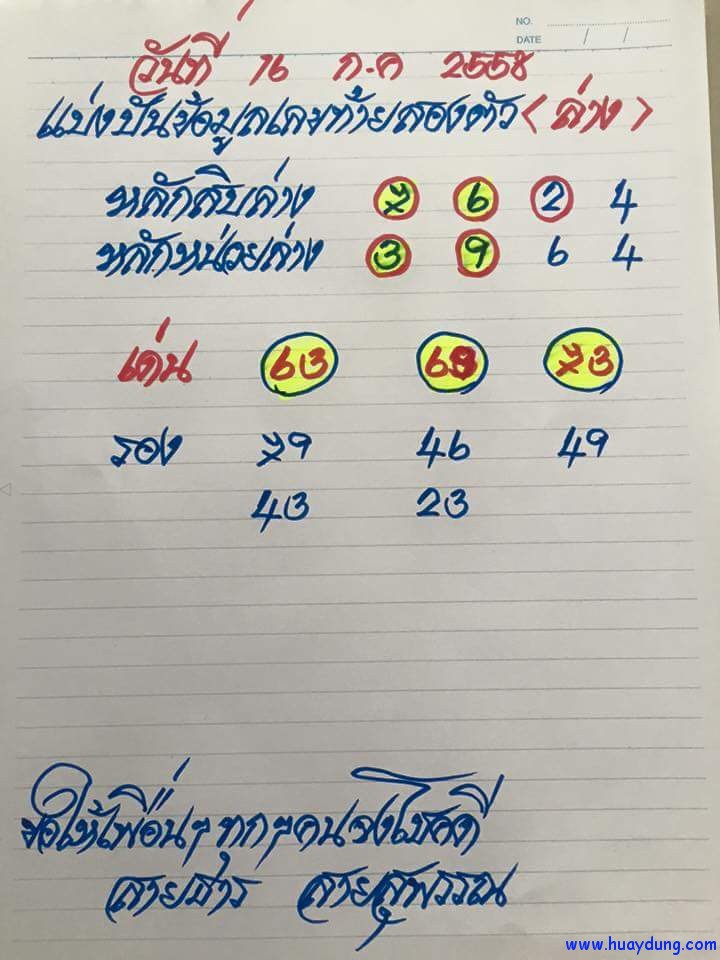 NO.
DATE / /
วันที่ 16 ก.ค 2558
แบ่งปันข้อมูลเลขท้ายสองตัว < ล่าง >
หลักสิบล่าง 7 6 2 4
หลักหน่วยล่าง 3 9 6 4
เด่น 63 69 73
รอง 79 46 49
43 23
ขอให้เพื่อนๆทุกๆคนจงโชคดี
สายธาร สายสุพรรณ
www.huaydung.com